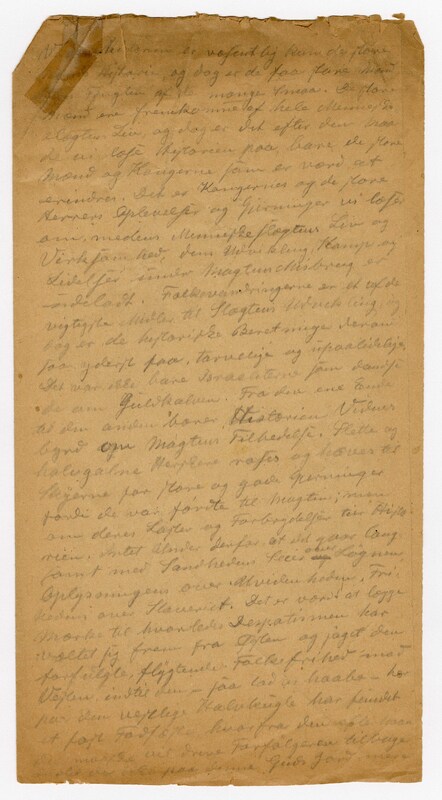 Historien er væsentlig kun de store
Historie, og dog er de faa store
Frugten af de mange smaa. De store
Mænd ere fremkomne af hele Menneske
slægtens Liv, og dog er det efter den Maa
de vi læse Historien paa, bare de store
Mænd og Kongerne som er værd at
erindres. Det er Kongernes og de store
Herrers Oplevelser og Gjerninger vi læser
om, medens Menneskeslægtens Liv og
Virksomhed, dem Udvikling Kamp og
Lidelser under Magtens Misbrug er
udeladt. Folkevandringerne er et af de
vigtigste Midler til Slægtens Udvikling, og
dog er de historiske Beretninger derom
saa yderst faa, tarvelige og upaalidelige.
Det var ikke bare Israeliterne som dansede
de om Guldkalven. Fra den ene Ende
til den anden bærer Historien Vidnes
byrd om Magtens Tilbedelse. Slette og
halvgalne Herskere roses og hæves til
Skyerne for store og gode Gjerninger
fordi de var fødte til Magten; men
om deres Laster og Forbrydelser tier Histo
rien. Intet Under derfor at det gaar lang
somt med Sandhedens Seier over Løgnen,
Oplysningens over Uvidenheden, Fri
hedens over Slaveriet. Det er værd at lægge
Mærke til hvorledes Despotismen har
væltet sig frem fra Østen og jaget den
forfulgte, flygtende Folkefrihed mod
Vesten, indtil den – saa lad os haabe – her
paa den vestlige Halvkugle har fundet
et fast Fodfæste, hvorfra den
vil drive Forfølgeren tilbage
Guds Jord